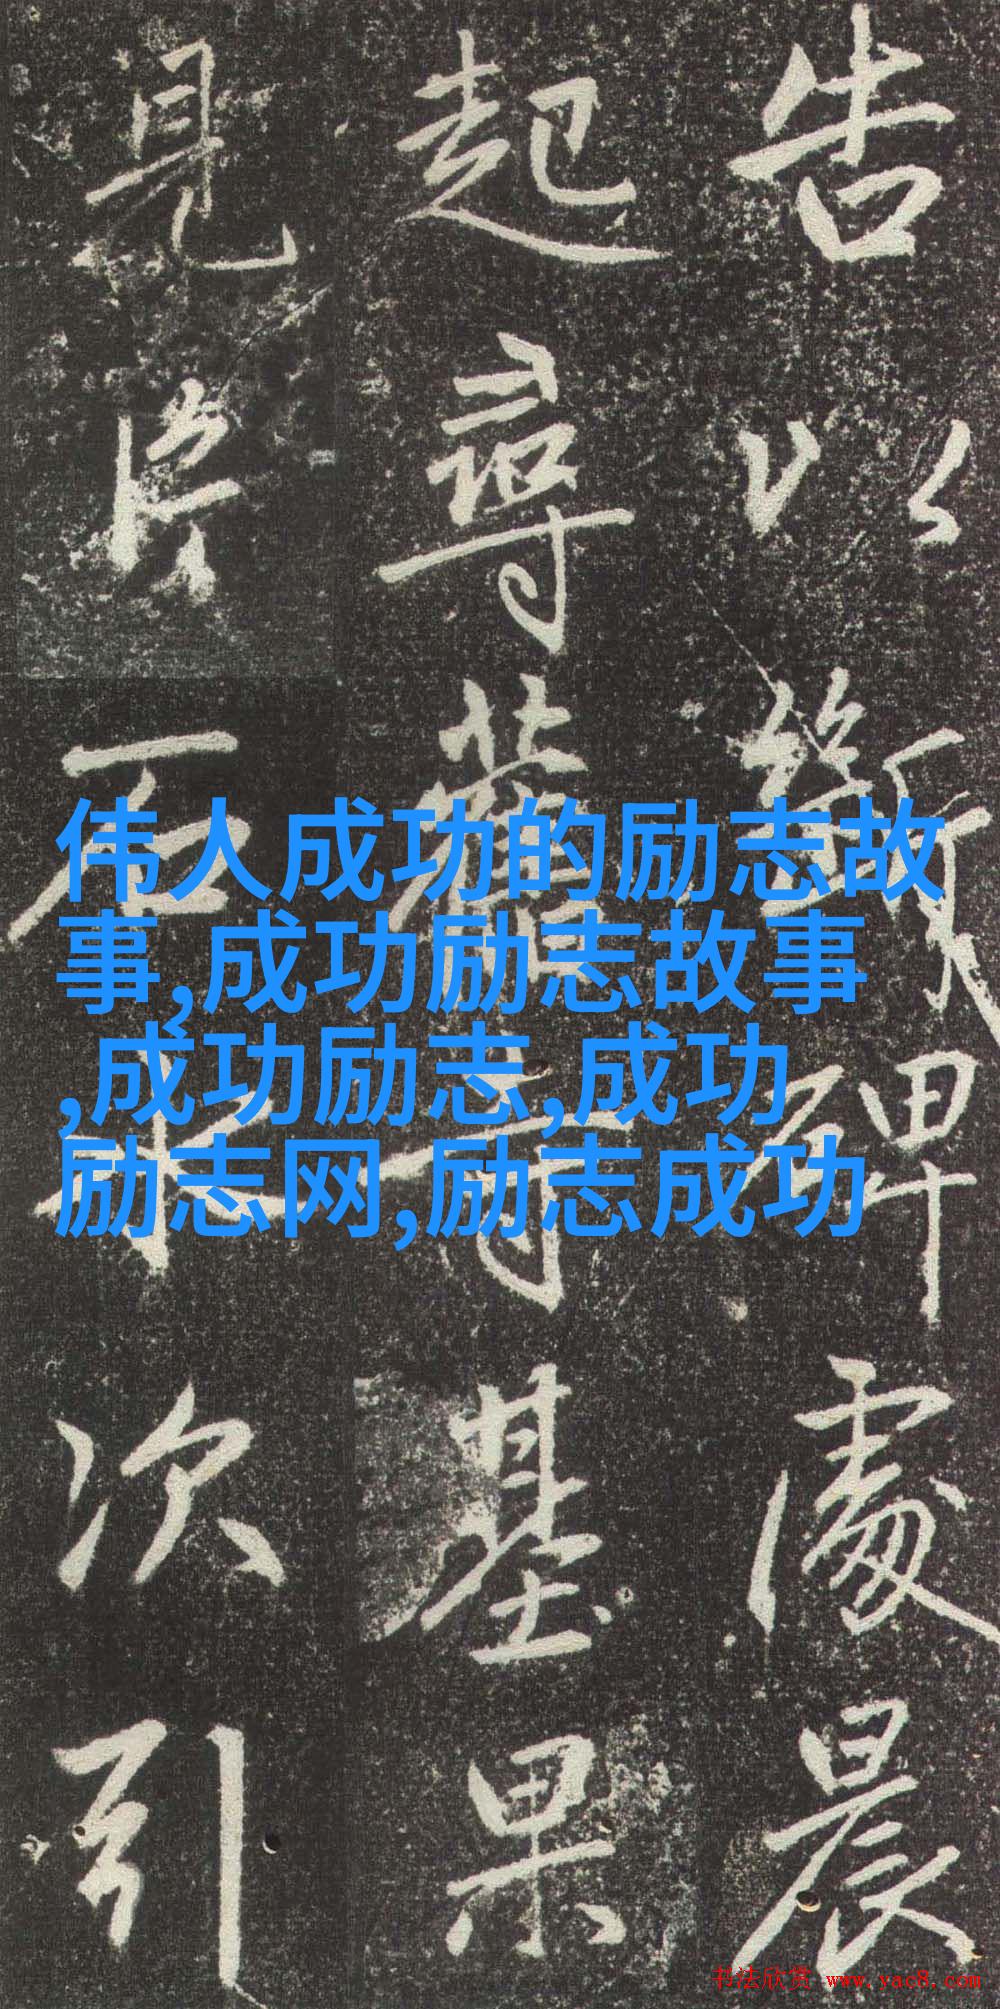 告以斷碑處晨
起尋舊寺基果
見片石水次引
伟人成功的励志故
事,成功励志故事
,成功励志,成功
励志网,励志成功
书法欣赏 www.yac8.com